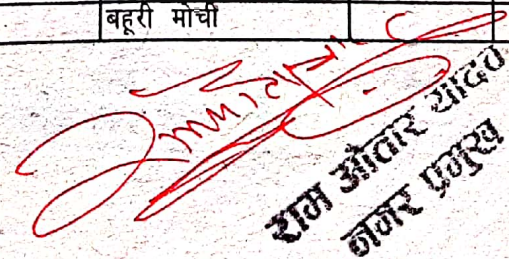 बहूरी मोची
राम औतार यादव
नगर प्रमुख